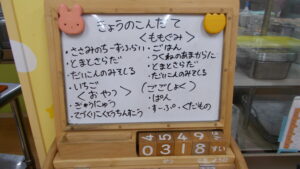 きょうのこんだて
<ももぐみ>
・ささみのちーずふらい
・とまとさらだ
・だいこんのみそしる
・いちご
<おやつ>
・ぎゅうにゅう
・ごはん
・つくねのあまからに
・とまとさらだ
・だいこんのみそしる
(ごごしょく)
・ぱん
・すーぷ・くだもの
0318
すい